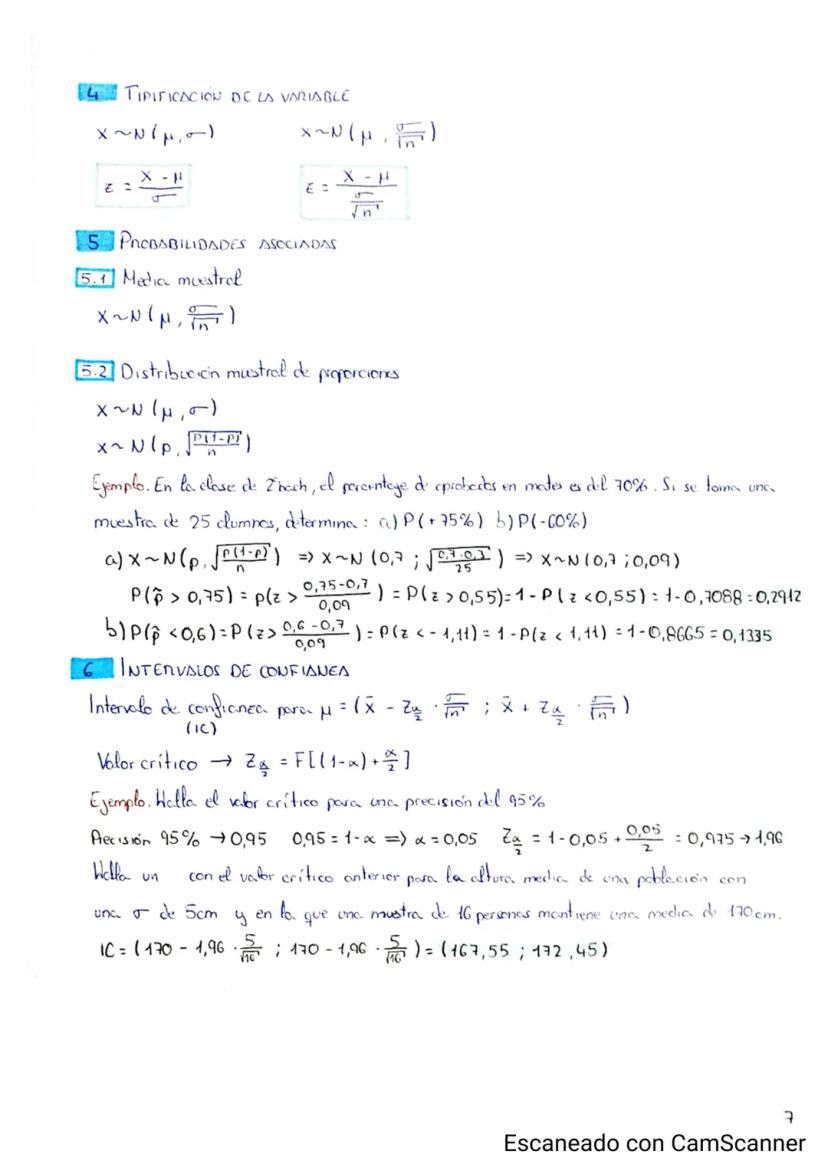 4 TIPIFICACIÓN DE LA VARIABLE
X~N(μ,σ) X~N(μ, σ/√n)
z = (X - μ)/σ z = (X - μ)/(σ/√n)
5 PROBABILIDADES ASOCIADAS
5.1 Media muestral
X~N(μ, σ/√n)
5.2 Distribución mustral de proporciones
X~N(μ,σ)
X~N(p, √(p(1-p)/n))
Ejemplo. En la clase de 2ºbach, el porcentage de aprobados en mates es del 70%. Si se toma una
muestra de 25 alumnos, determina: a) P(+75%) b) P(-60%)
a) X~N(p, √(p(1-p)/n)) => X~N(0,7 ; √(0,7·0,3/25)) => X~N(0,7 ; 0,09)
P(p̂ > 0,75) = p(z > (0,75-0,7)/0,09) = P(z > 0,55) = 1 - P(z < 0,55) = 1-0,7088 = 0,2912
b) P(p̂ < 0,6) = P(z > (0,6-0,7)/0,09) = P(z < -1,11) = 1 - P(z < 1,11) = 1-0,8665 = 0,1335
6 INTERVALOS DE CONFIANZA
Intervalo de confianza para μ = (x̄ - Zα/2 · σ/√n ; x̄ + Zα/2 · σ/√n)
(IC)
Valor crítico → Zα/2 = F[(1-α) + α/2]
Ejemplo. Halla el valor crítico para una precisión del 95%
Precisión 95% → 0,95 0,95 = 1-α => α = 0,05 Zα/2 = 1-0,05 + 0,05/2 = 0,975 → 1,96
Halla un con el valor crítico anterior para la altura media de una población con
una σ de 5cm y en la que una mustra de 16 personas mantiene una media de 170cm.
IC = (170 - 1,96 · 5/√16 ; 170 - 1,96 · 5/√16) = (167,55 ; 172,45)
7
Escaneado con CamScanner